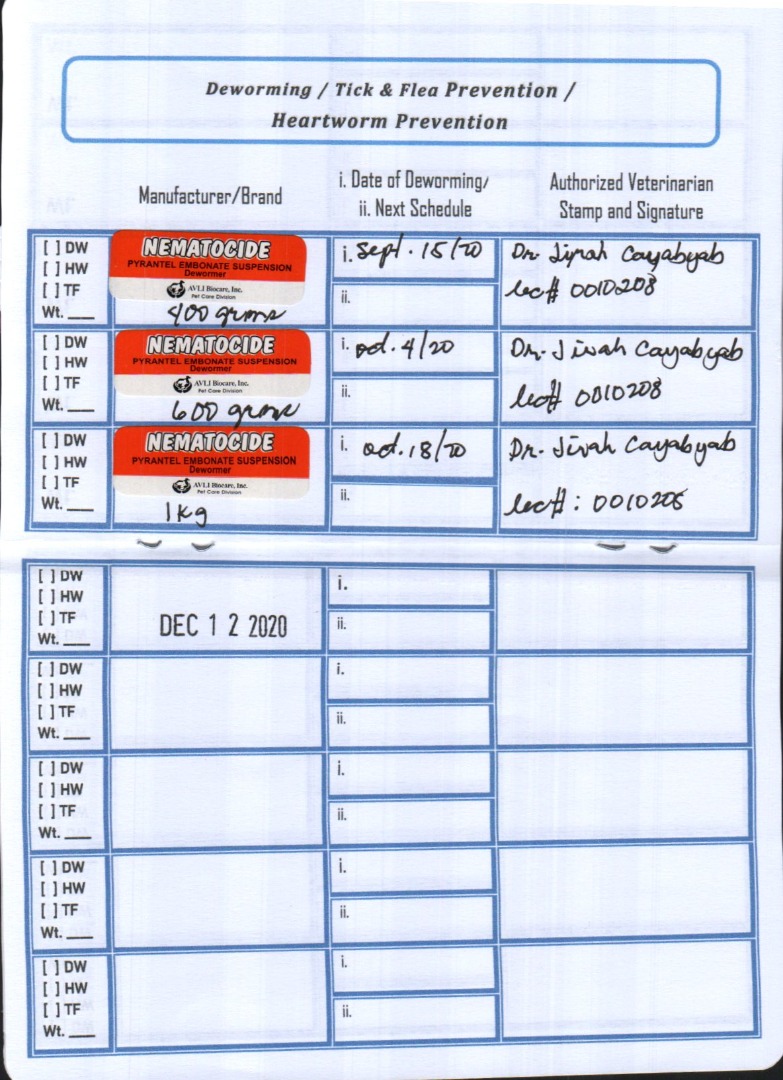 Deworming / Tick & Flea Prevention /
Heartworm Prevention
Manufacturer/Brand
i. Date of Deworming/
ii. Next Schedule
Authorized Veterinarian
Stamp and Signature
[ ] DW
[ ] HW
[ ] TF
Wt. ___
NEMATOCIDE
PYRANTEL EMBONATE SUSPENSION
Dewormer
AVLI Biocare, Inc.
Pet Care Division
400 grams
i. Sept. 15/20
ii.
Dr. Jirah Cayabyab
lic# 0010208
[ ] DW
[ ] HW
[ ] TF
Wt. ___
NEMATOCIDE
PYRANTEL EMBONATE SUSPENSION
Dewormer
AVLI Biocare, Inc.
Pet Care Division
600 grams
i. Oct. 4/20
ii.
Dr. Jirah Cayabyab
lic# 0010208
[ ] DW
[ ] HW
[ ] TF
Wt. ___
NEMATOCIDE
PYRANTEL EMBONATE SUSPENSION
Dewormer
AVLI Biocare, Inc.
Pet Care Division
1kg
i. Oct. 18/20
ii.
Dr. Jirah Cayabyab
lic#: 0010208
[ ] DW
[ ] HW
[ ] TF
Wt. ___
DEC 12 2020
i.
ii.
[ ] DW
[ ] HW
[ ] TF
Wt. ___
i.
ii.
[ ] DW
[ ] HW
[ ] TF
Wt. ___
i.
ii.
[ ] DW
[ ] HW
[ ] TF
Wt. ___
i.
ii.
[ ] DW
[ ] HW
[ ] TF
Wt. ___
i.
ii.